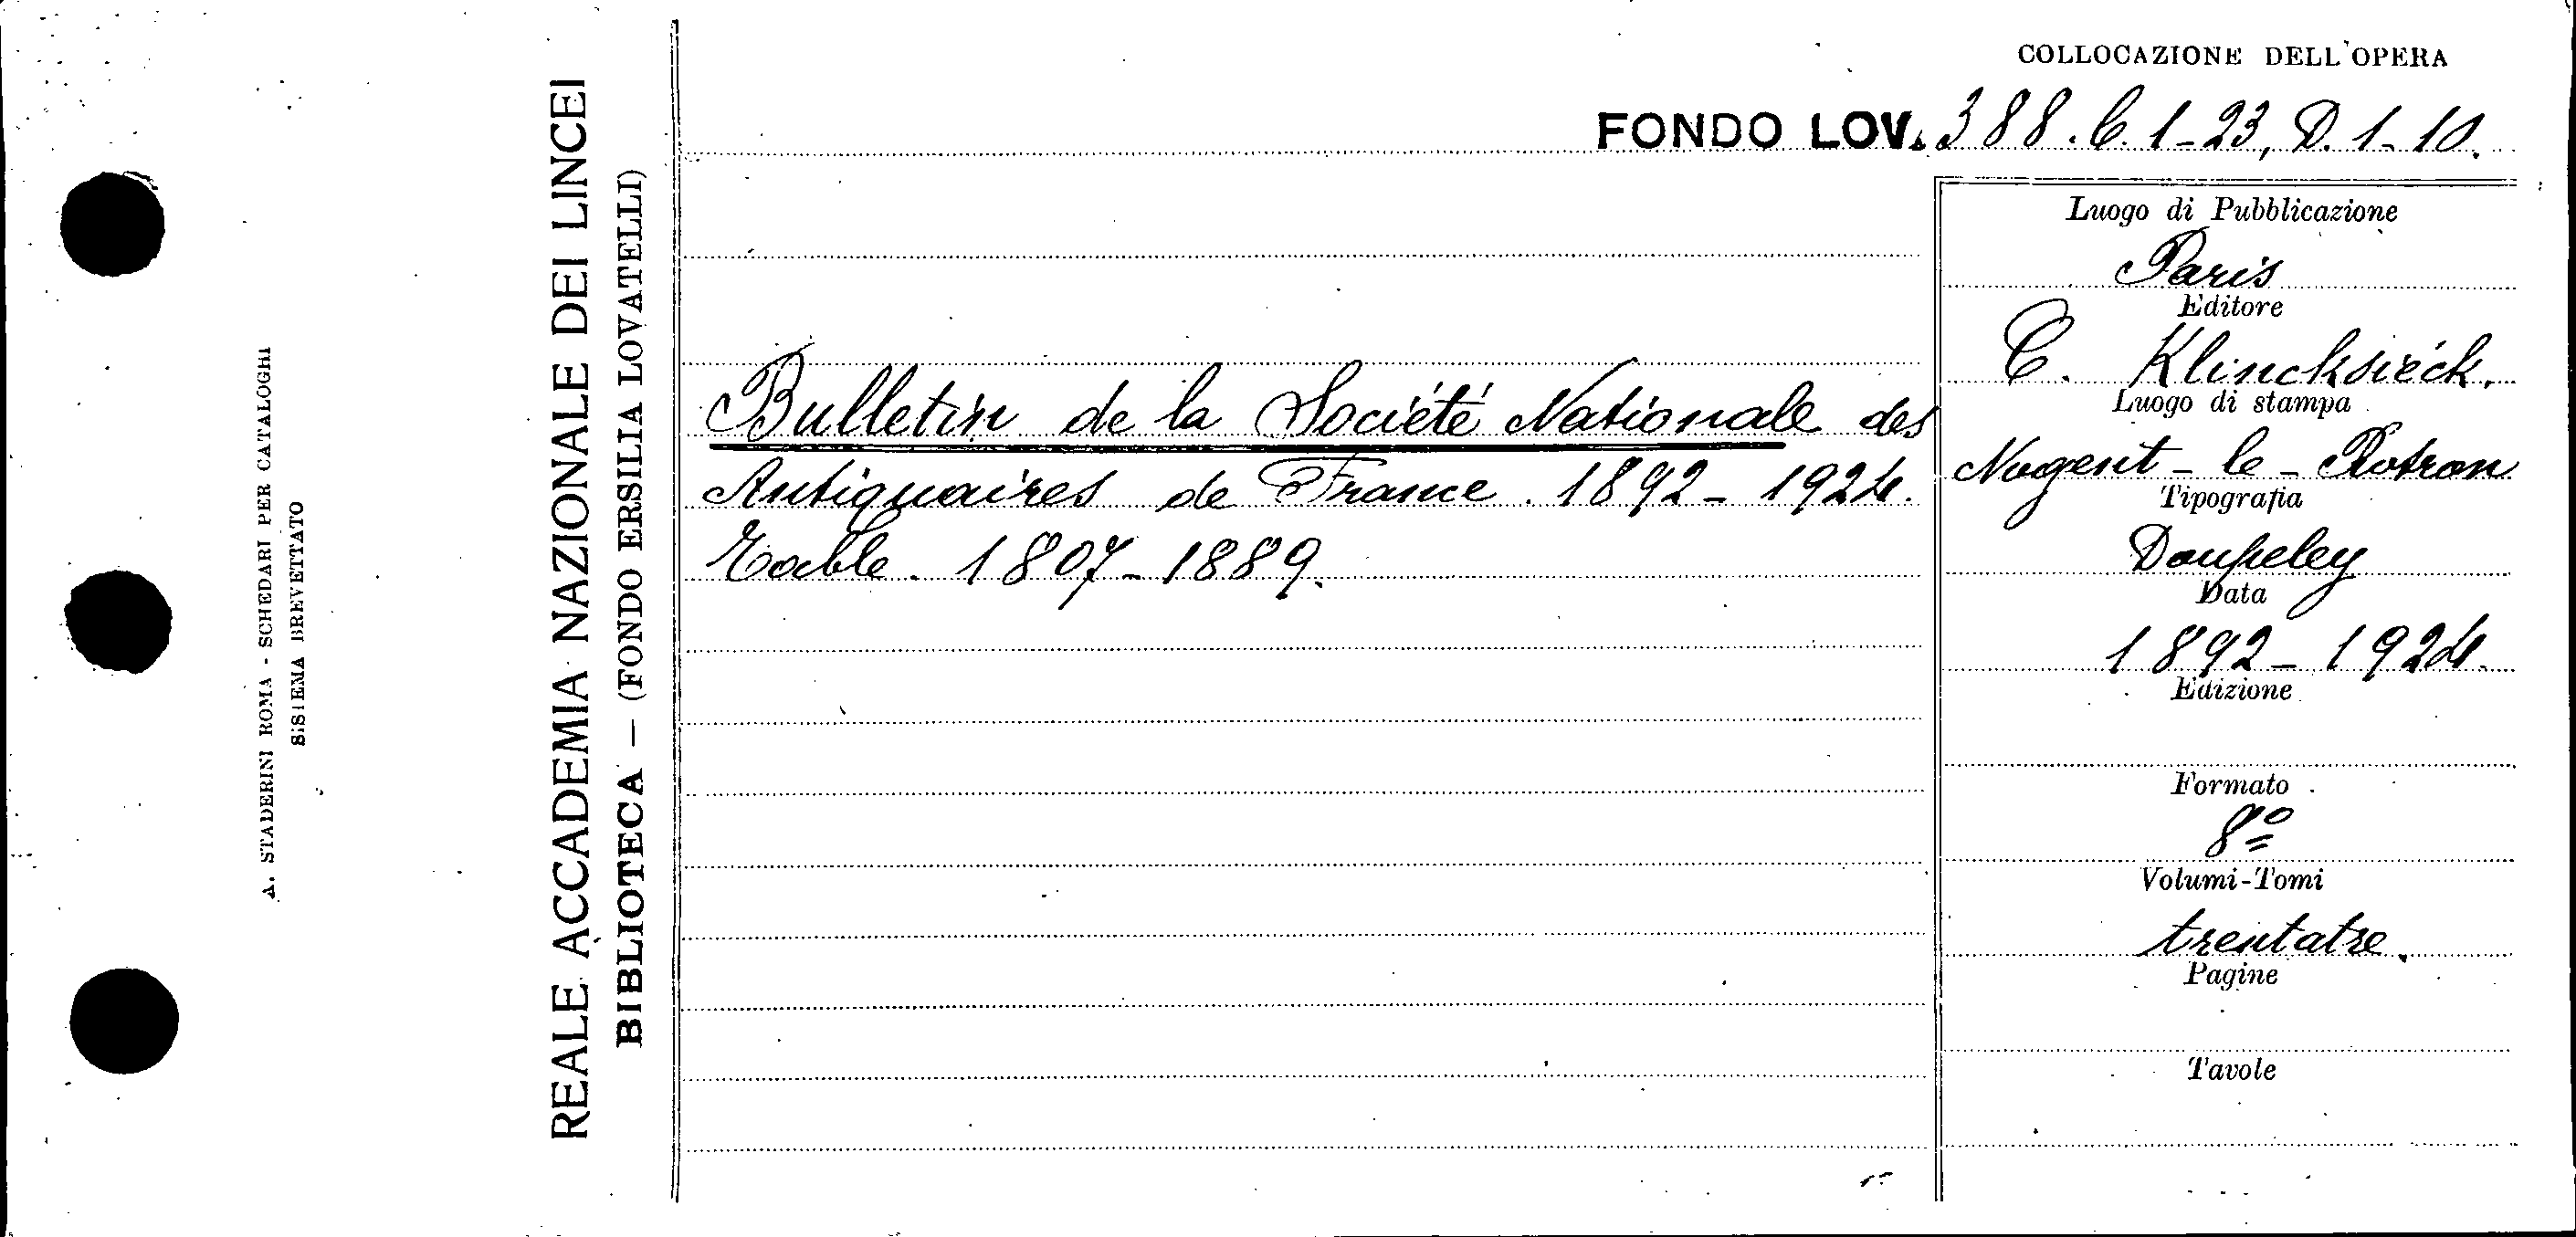 A. STADERINI ROMA - SCHEDARI PER CATALOGHI
SISTEMA BREVETTATO
REALE ACCADEMIA NAZIONALE DEI LINCEI
BIBLIOTECA — (FONDO ERSILIA LOVATELLI)
COLLOCAZIONE DELL'OPERA
FONDO LOV. 388. C. 1-23, D. 1-10.
Bulletin de la Société Nationale des
Antiquaires de France. 1892-1924.
Table. 1807-1889.
Luogo di Pubblicazione
Paris
Editore
C. Klincksieck.
Luogo di stampa
Nogent-le-Rotrou
Tipografia
Daupeley
Data
1892-1924.
Edizione
Formato
8º
Volumi-Tomi
trentatre.
Pagine
Tavole